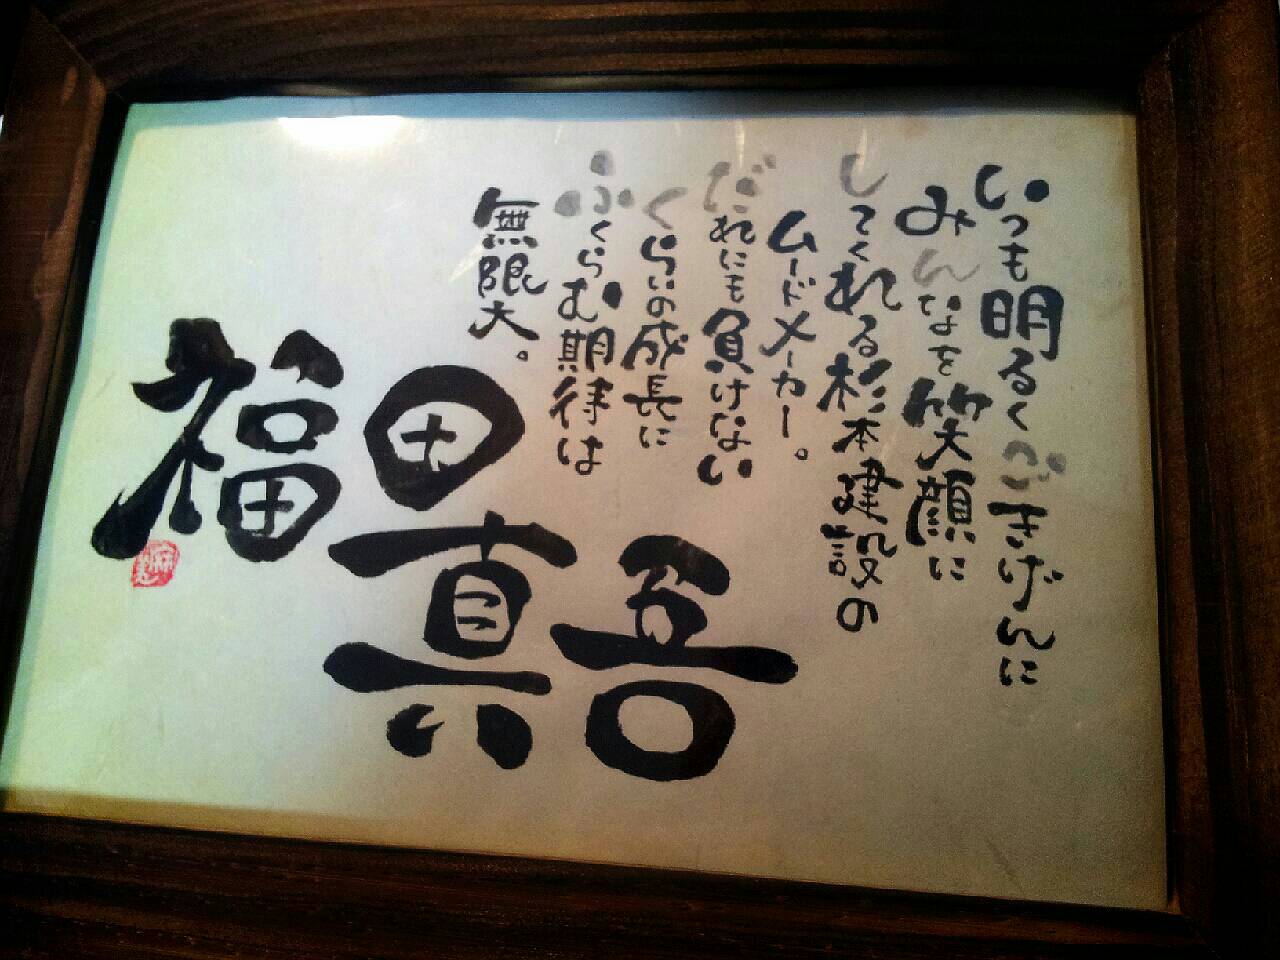 いつも明るくごきげんに
みんなを笑顔に
してくれる杉本建設の
ムードメーカー。
だれにも負けない
くらいの成長に
ふくらむ期待は
無限大。
福田真吾